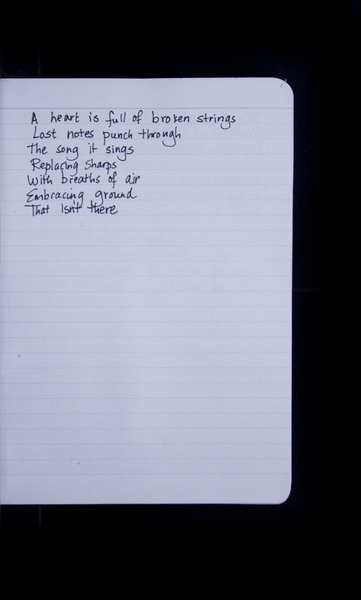 A heart is full of broken strings
Lost notes punch through
The song it sings
Replacing Sharps
With breaths of air
Embracing ground
That Isn't there